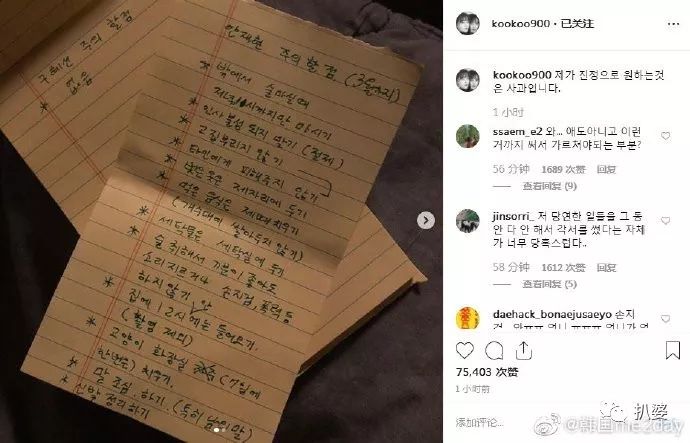 구혜선 주의 할 점
* 없음
안재현 주의 할 점 (3월까지)
* 밖에서 술 마실때
저녁 11시까지만 마시기
* 인사불성 되지 말기 (절제)
* 고집부리지 않기
* 타인에게 피해주지 않기
* 벗은 옷은 제자리에 두기
* 먹은 음식은 제때 치우기
(개수대에 쌓아두지 않기)
* 세탁물은 세탁실에 두기
* 술 취해서 기분이 좋아도
소리 지르거나 손지검, 폭력 등
하지 않기
* 집에 12시 안에는 들어오기.
(촬영 제외)
* 고양이 화장실 (7일에
한번은) 치우기.
* 말 조심. 하기. (특히 남의 말)
* 신발 정리하기
kookoo900 · 已关注
kookoo900 제가 진정으로 원하는것
은 사과입니다.
1 小时
ssaem_e2 와... 애도아니고 이런
거까지 써서 가르쳐야되는 부분?
56 分钟 1689 次赞 回复
查看回复 (9)
jinsorri_ 저 당연한 일들을 그 동
안 다 안 해서 각서를 썼다는 자체
가 너무 당혹스럽다..
58 分钟 1612 次赞 回复
查看回复 (5)
daehack_bonaejusaeyo 손지
75,403 次赞
1 小时前
添加评论...
扒婆
@韩国me2day